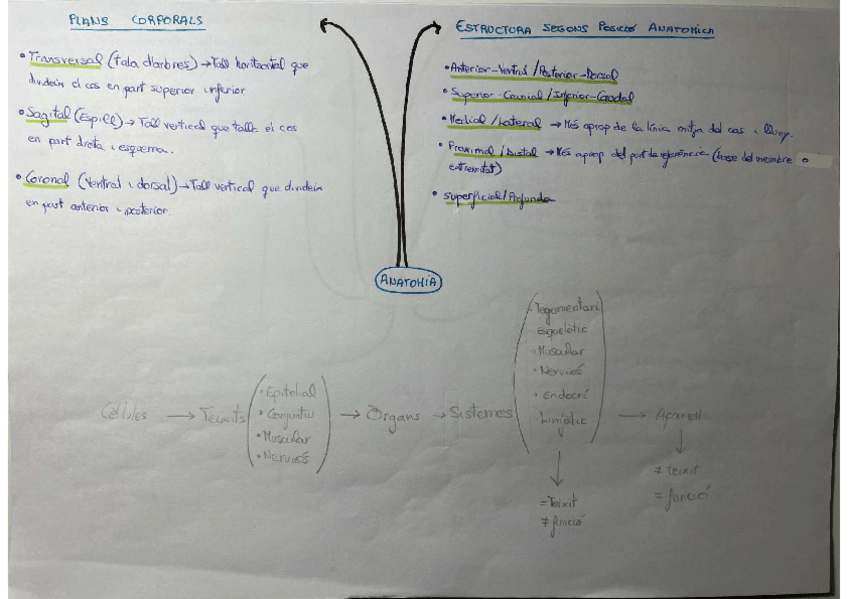 PLANS CORPORALS
• Transversal (tala d'arbres) → Tall horitzontal que
divideix el cos en part superior i inferior
• Sagital (Espill) → Tall vertical que talla el cos
en part dreta i esquerra.
• Coronal (Ventral i dorsal) → Tall vertical que divideix
en part anterior i posterior.
ESTRUCTURA SEGONS POSICIÓ ANATOMICA
• Anterior-Ventral / Posterior-Dorsal
• Superior-Cranial / Inferior-Caudal
• Medial / Lateral → Més aprop de la línia mitja del cos i lluny.
• Proximal / Distal → Més aprop del punt de referència (base del membre o
extremitat)
• Superficial / Profunda
ANATOMIA
Cèl·lules → Teixits → Òrgans → Sistemes → Aparell
• Epitelial
• Conjuntiu
• Muscular
• Nerviós
· Tegumentari
· Esquelètic
· Muscular
· Nerviós
· Endocrí
· Limfàtic
= Teixit
≠ funció
≠ teixit
= funció